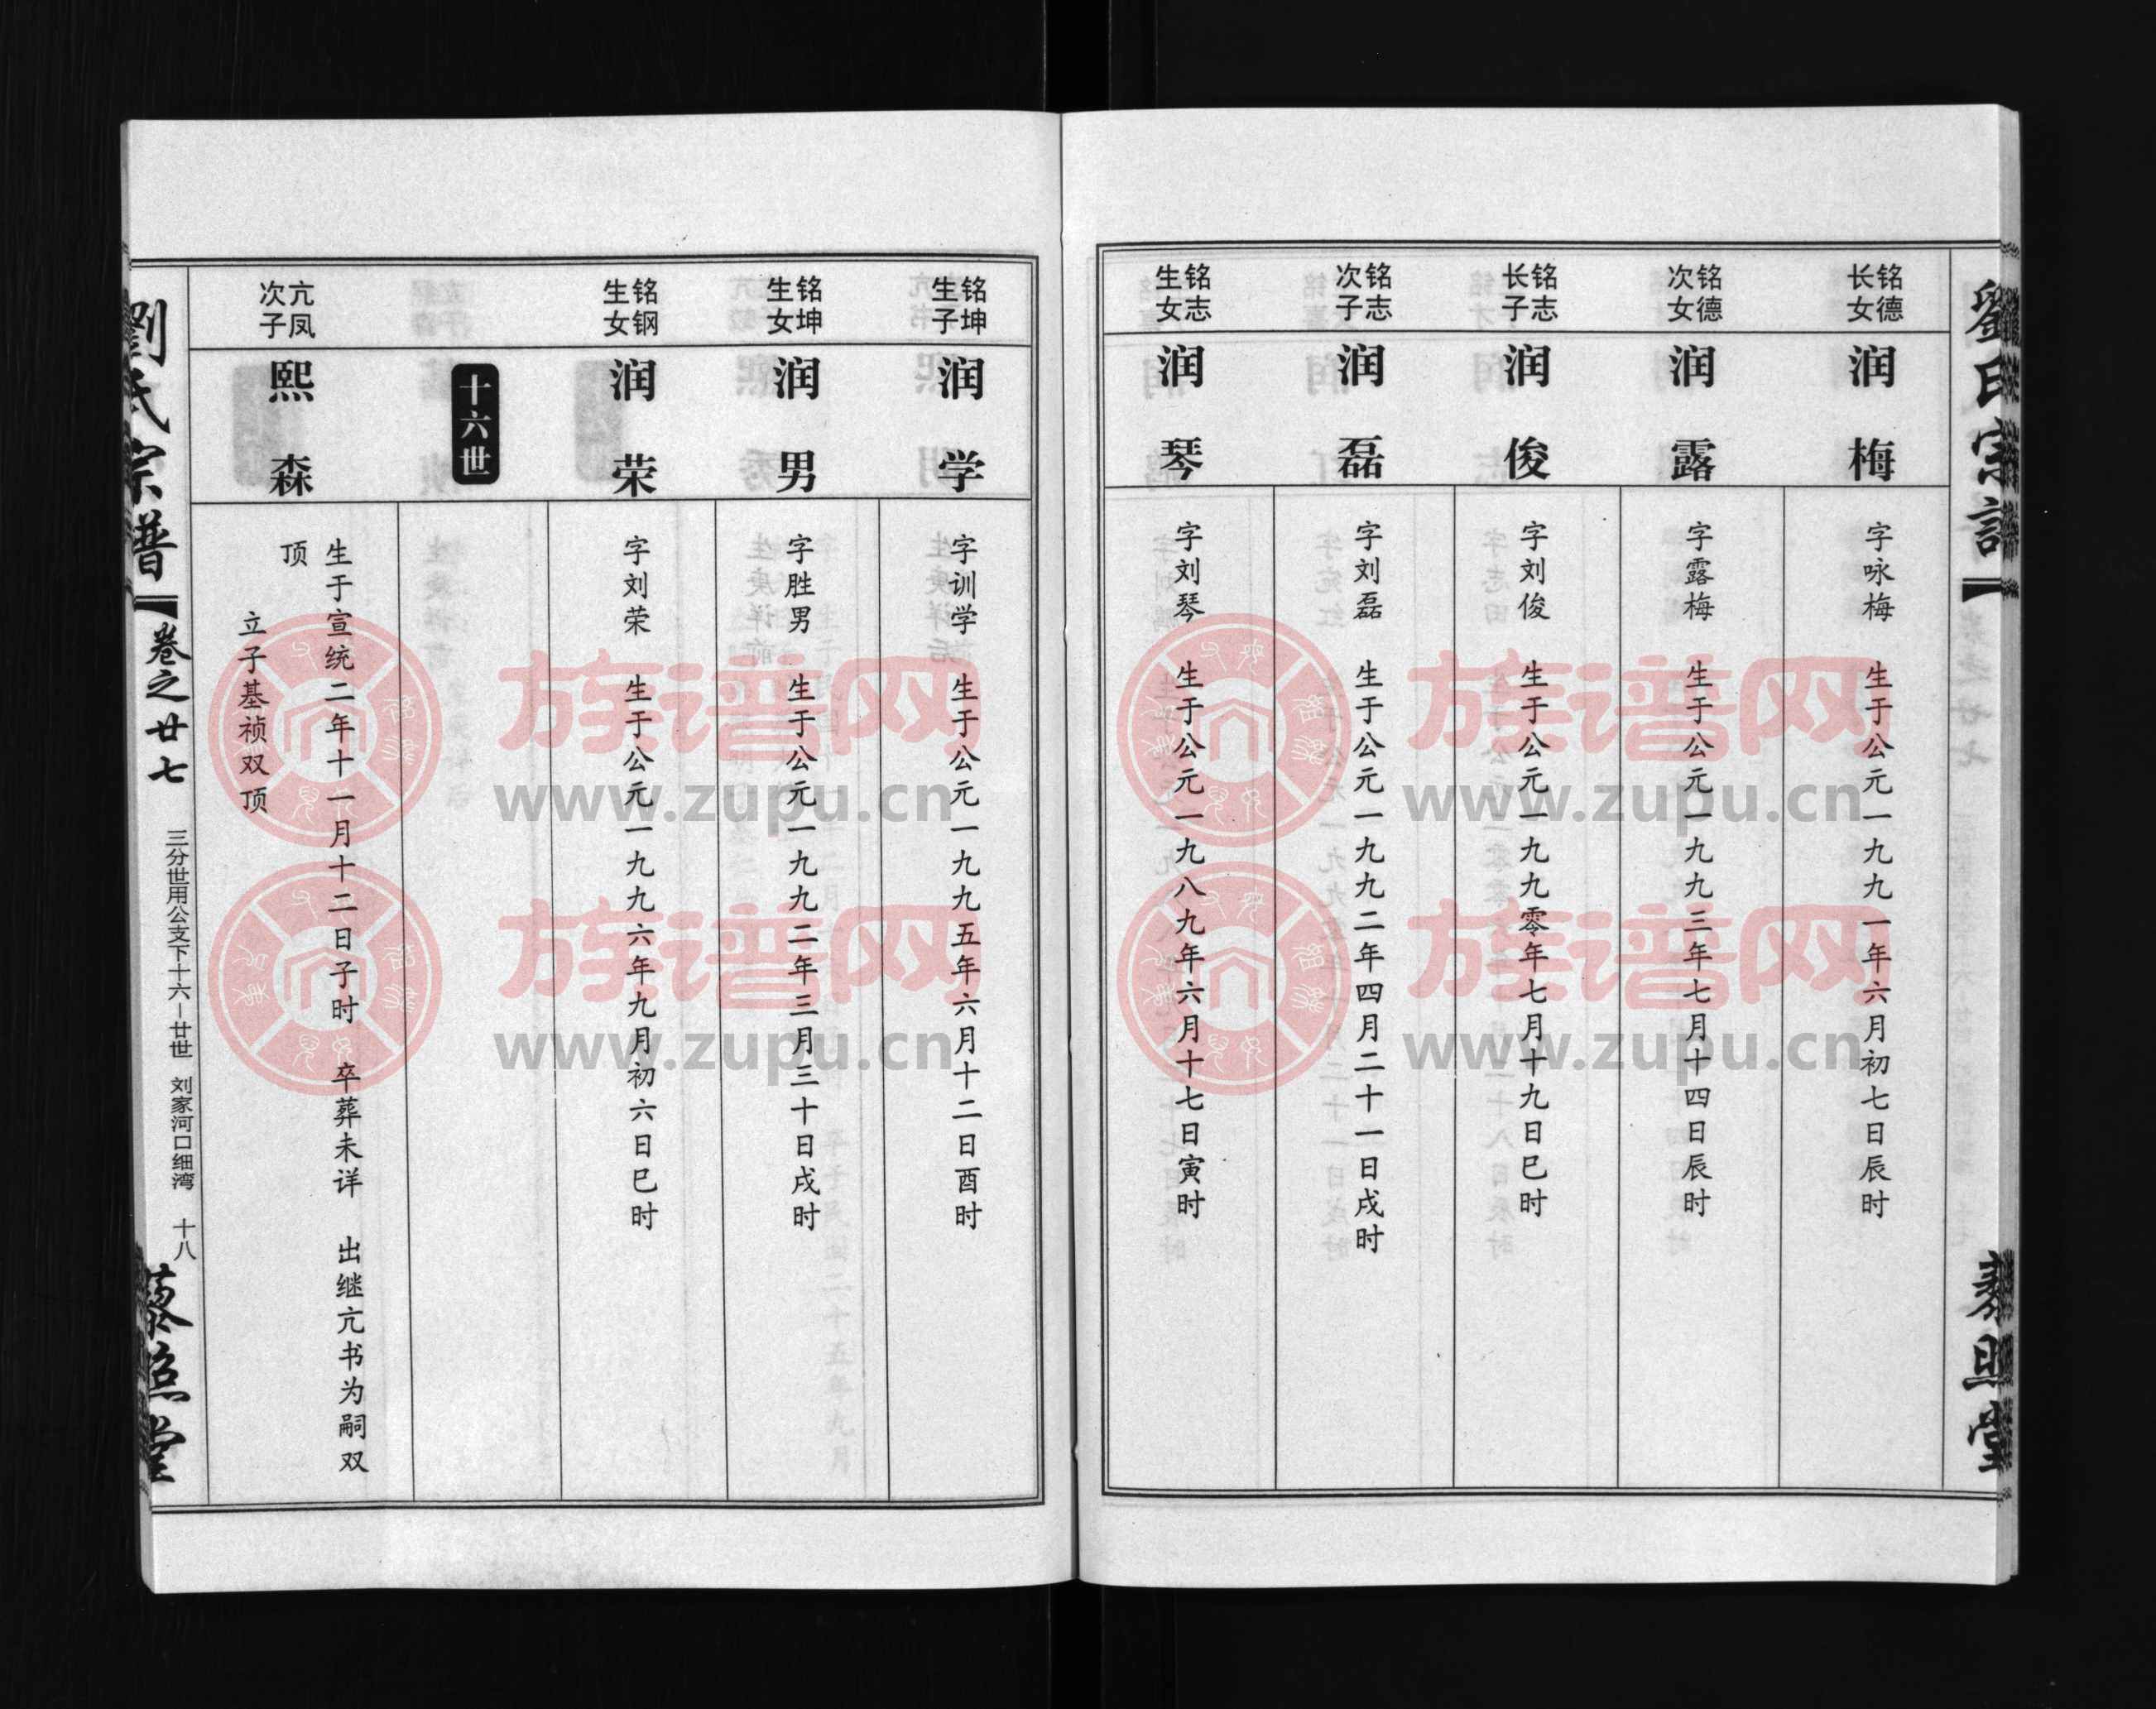 劉氏宗譜
藜照堂
铭德
长女
润梅
字咏梅 生于公元一九九一年六月初七日辰时
铭德
次女
润露
字露梅 生于公元一九九三年七月十四日辰时
铭志
长子
润俊
字刘俊 生于公元一九九零年七月十九日巳时
铭志
次子
润磊
字刘磊 生于公元一九九二年四月二十一日戌时
铭志
生女
润琴
字刘琴 生于公元一九八九年六月十七日寅时
铭坤
生子
润学
字训学 生于公元一九九五年六月十二日酉时
铭坤
生女
润男
字胜男 生于公元一九九二年三月三十日戌时
铭钢
生女
润荣
字刘荣 生于公元一九九六年九月初六日巳时
十六世
亢凤
次子
熙森
生于宣统二年十一月十二日子时 卒葬未详 出继亢书为嗣双
顶
立子基祯双顶
劉氏宗譜
卷之廿七
三分世用公支下十六－廿世 刘家河口细湾 十八
藜照堂
族谱网
www.zupu.cn
族谱网
www.zupu.cn
族谱网
www.zupu.cn
族谱网
www.zupu.cn